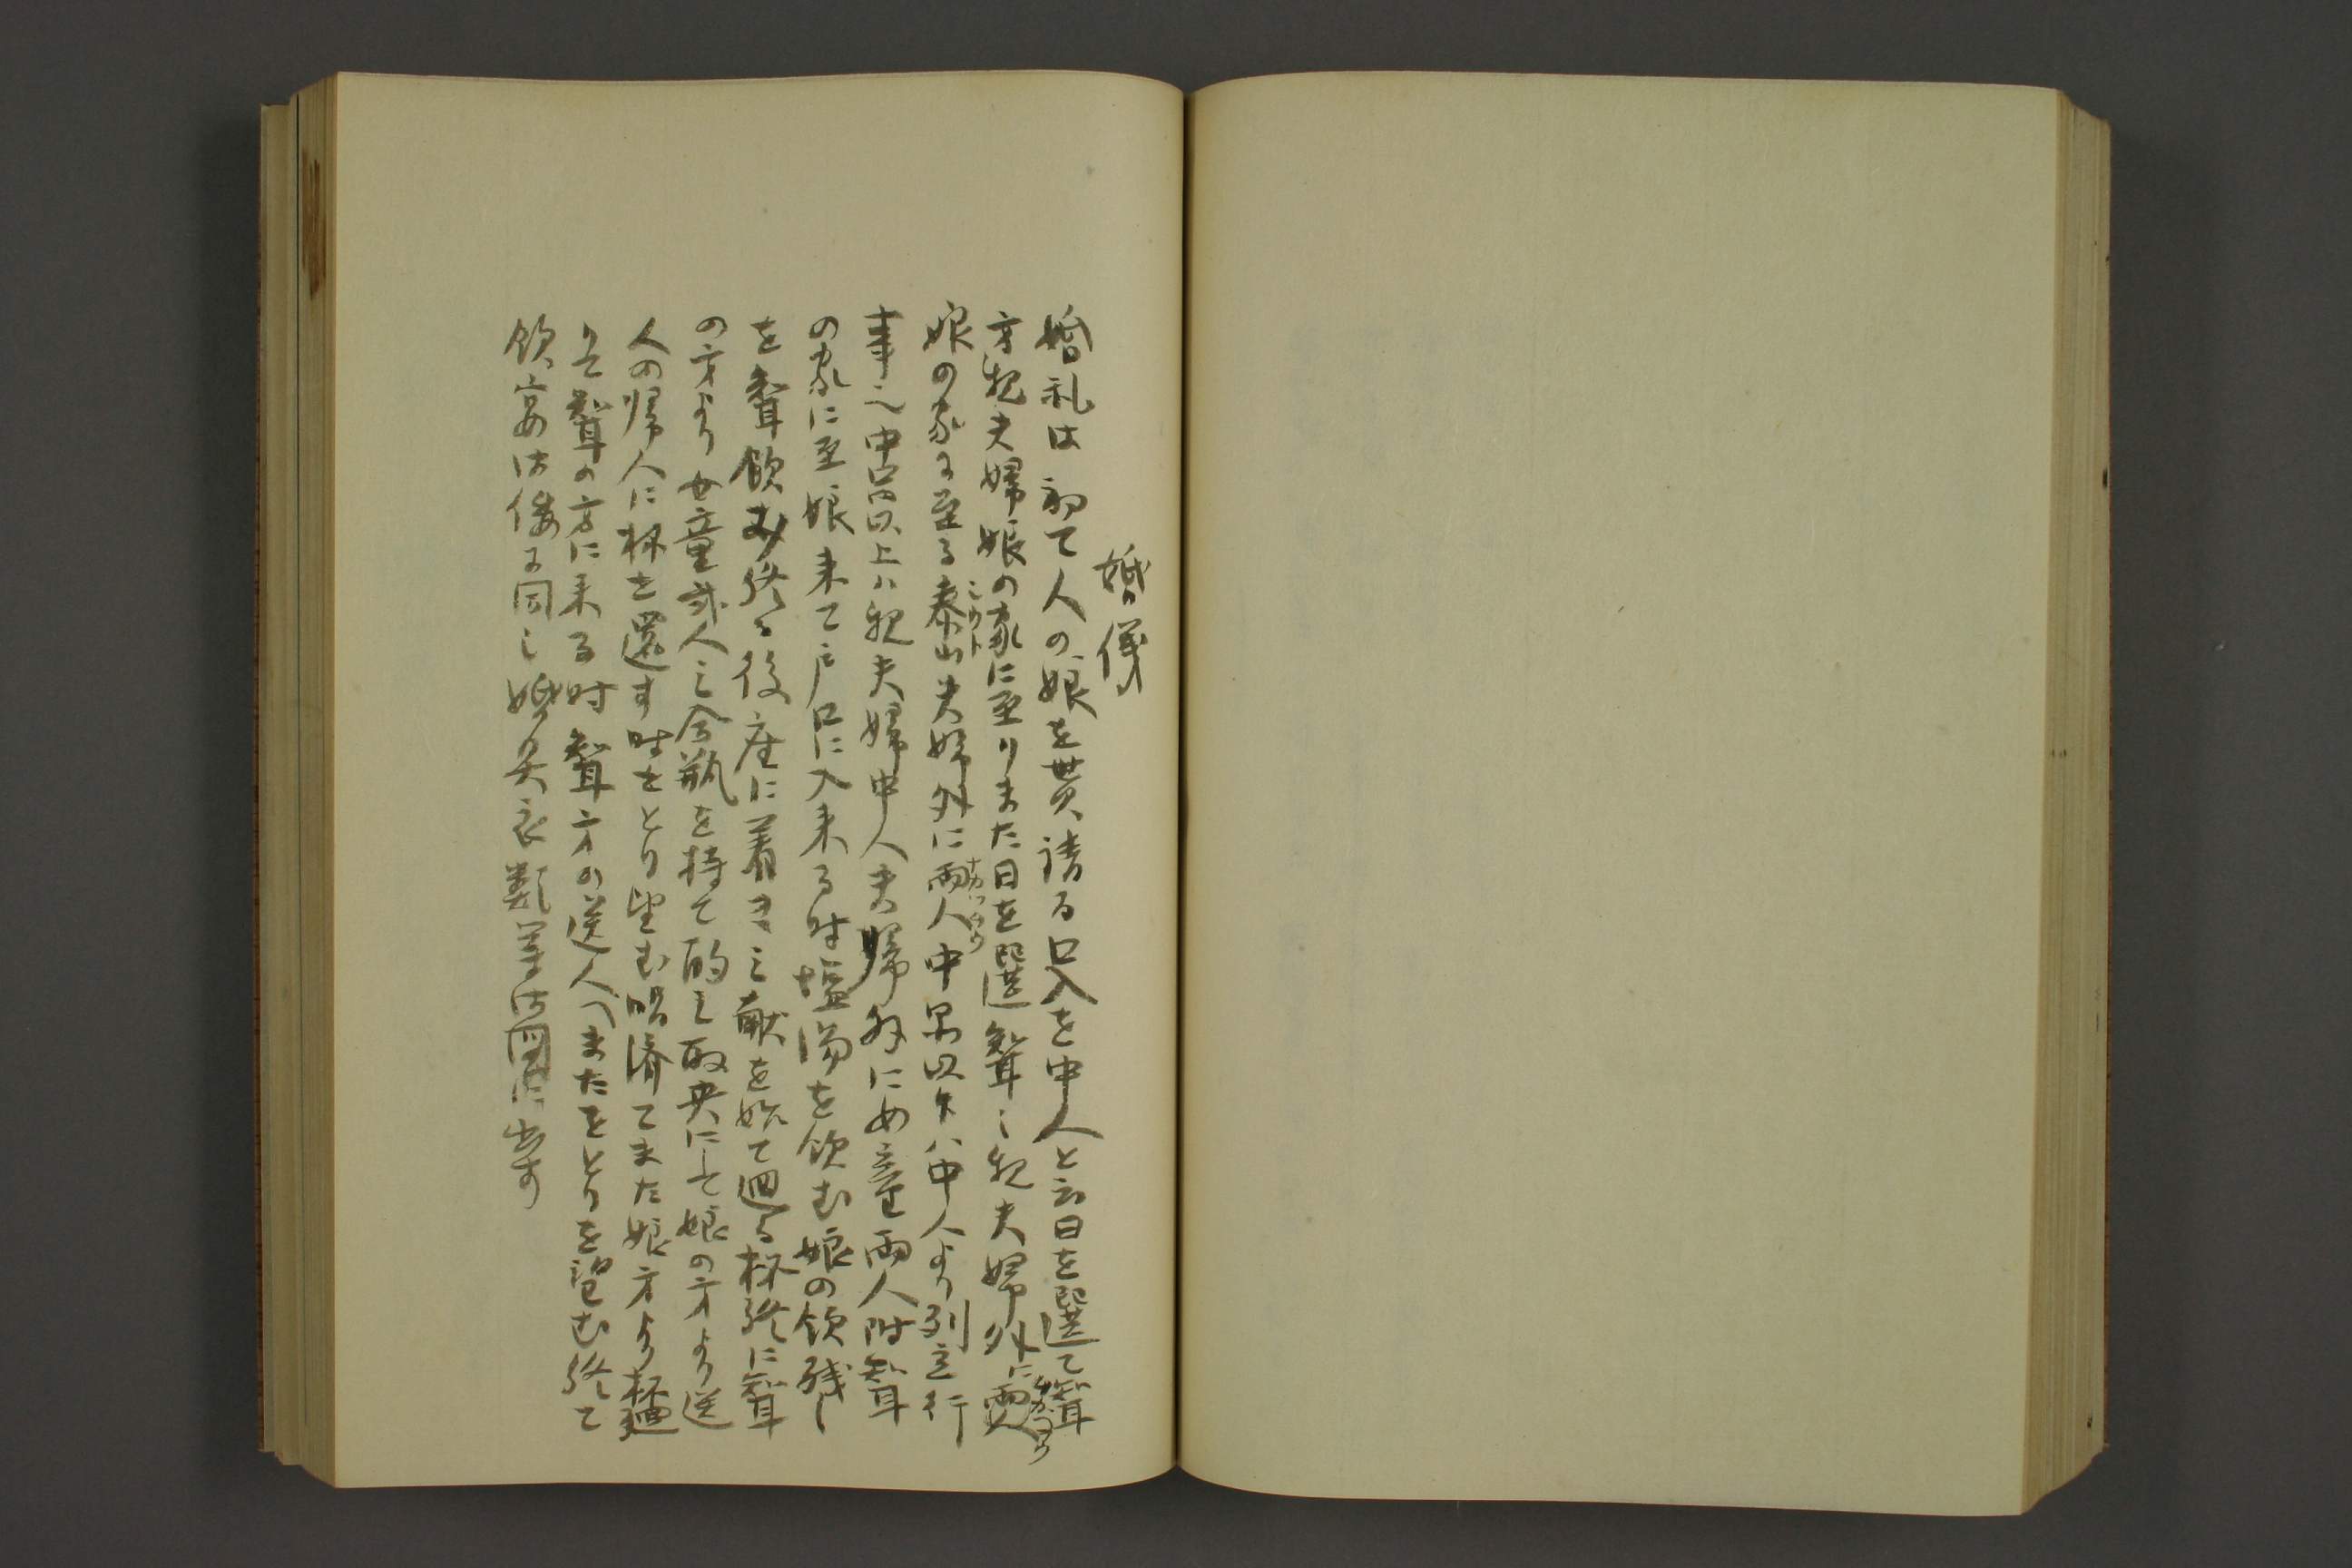 婚儀
婚礼は初て人の娘を貰請る口入を中人と云日を選て聟
方親夫婦娘の家に至りまた日を選聟之親夫婦外に両人
娘の家に至る泰山夫婦外に両人中品以下ハ中人より列立行
事也中品以上ハ親夫婦中人夫婦外にめ童両人附聟
の家に至娘来て戸口に入来る時塩湯を飲む娘の飲残し
を聟飲み終る後座に着き三献を始て廻る杯終に聟
の方より女童弐人三合瓶を持て酌之取央にして娘の方より送
人の帰人に杯を還す時をとり望む唄済てまた娘方より杯廻
りて聟の方に来る時聟方の送人へまたをとりを望む終て
飲宴は倭に同し婚具衣類等は図に出す